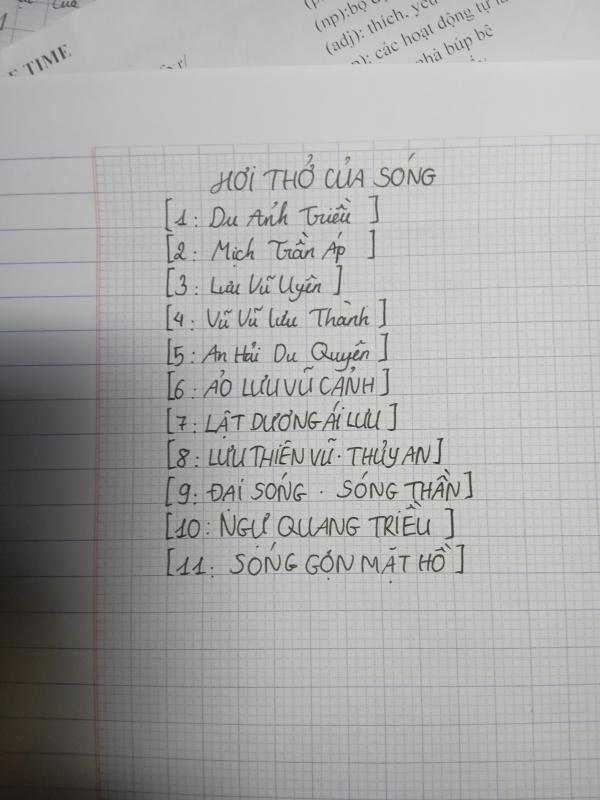 E TIME
(np): bộ
(adj): thích, yêu
các hoạt động tự
nhà búp bê
HƠI THỞ CỦA SÓNG
[1: Du Ảnh Triều ]
[2: Mịch Trần Áp ]
[3: Lưu Vũ Uyên ]
[4: Vũ Vũ Lưu Thành ]
[5: An Hải Du Quyền ]
[6: ẢO LƯU VŨ CẢNH ]
[7: LẬT DƯƠNG ÁI LƯU ]
[8: LƯU THIÊN VŨ · THỦY AN ]
[9: ĐẠI SÓNG · SÓNG THẦN ]
[10: NGỰ QUANG TRIỀU ]
[11: SÓNG GỢN MẶT HỒ ]